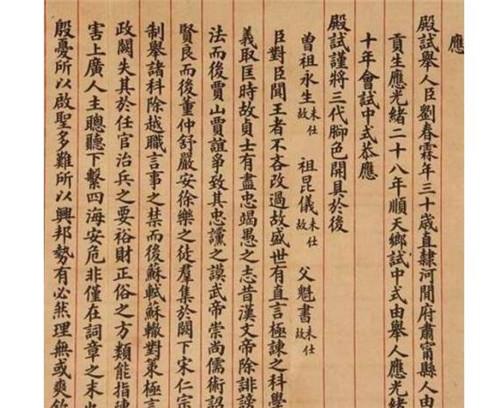 應
殿試舉人臣劉春霖年三十歲直隸河間府肅寧縣人由
貢生應光緒二十八年順天鄉試中式由舉人應光緒
十年會試中式恭應
殿試謹將三代腳色開具於後
曾祖永生未仕故 祖昆儀未仕故 父魁書未仕故
臣對臣聞王者不吝改過故盛世有直言極諫之科學
義取匡時故貞士有盡忠竭愚之志昔漢文帝除誹謗
法而後賈山賈誼爭致其忠讜之謨武帝崇尚儒術詔
賢良而後董仲舒嚴安徐樂之徒羣集於闕下宋仁宗
制舉諸科除越職言事之禁而後蘇軾蘇轍對策極言
政闕失其於任官治兵之要裕財正俗之方類能指陳
害上廣人主聰聽下繫四海安危非僅在詞章之末
殷憂所以啟聖多難所以興邦勢有必然理無或爽欽